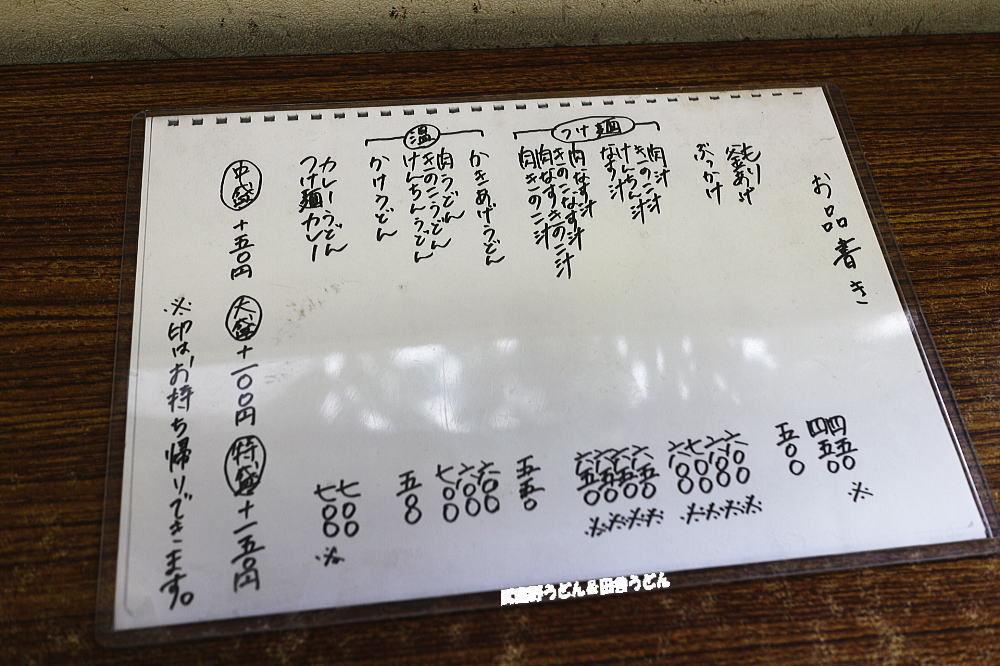 お品書き
もり 四五〇 ※
釜あげ 四五〇
ぶっかけ 五〇〇
つけ麺
肉汁 六〇〇 ※
きのこ汁 六〇〇 ※
けんちん汁 七〇〇 ※
なす汁 六〇〇 ※
肉なす汁 六五〇 ※
きのこなす汁 六五〇 ※
肉なすきのこ汁 ※
肉きのこ汁 六五〇 ※
かきあげうどん 五五〇
温
肉うどん 六〇〇
きのこうどん 六〇〇
けんちんうどん 七〇〇
かけうどん 五〇〇
カレーうどん 七〇〇
つけ麺カレー 七〇〇 ※
中盛+五〇円 大盛+一〇〇円 特盛+一五〇円
※印はお持ち帰りできます。
武蔵野うどん&田舎うどん